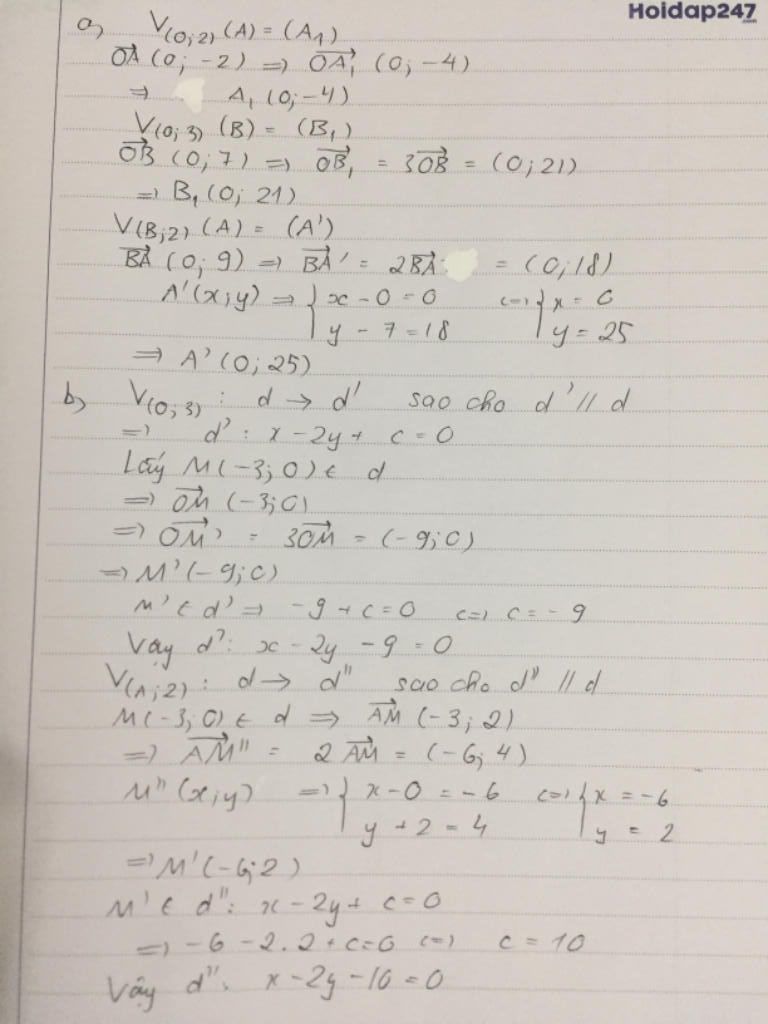 Hoidap247.com
a) V(O;2) (A) = (A₁)
OA⃗ (0; -2) => OA₁⃗ (0; -4)
=> A₁ (0; -4)
V(O;3) (B) = (B₁)
OB⃗ (0; 7) => OB₁⃗ = 3OB⃗ = (0; 21)
=> B₁ (0; 21)
V(B;2) (A) = (A')
BA⃗ (0; 9) => BA'⃗ = 2BA⃗ = (0; 18)
A'(x; y) => { x - 0 = 0 <=> { x = 0
y - 7 = 18 y = 25
=> A' (0; 25)
b) V(O;3) : d → d' sao cho d' // d
=> d' : x - 2y + c = 0
Lấy M(-3; 0) ∈ d
=> OM⃗ (-3; 0)
=> OM'⃗ = 3OM⃗ = (-9; 0)
=> M'(-9; 0)
M' ∈ d' => -9 + c = 0 <=> c = -9
Vậy d': x - 2y - 9 = 0
V(A;2) : d → d" sao cho d" // d
M(-3; 0) ∈ d => AM⃗ (-3; 2)
=> AM"⃗ = 2AM⃗ = (-6; 4)
M"(x; y) => { x - 0 = -6 <=> { x = -6
y + 2 = 4 y = 2
=> M'(-6; 2)
M' ∈ d": x - 2y + c = 0
=> -6 - 2.2 + c = 0 <=> c = 10
Vậy d": x - 2y - 10 = 0